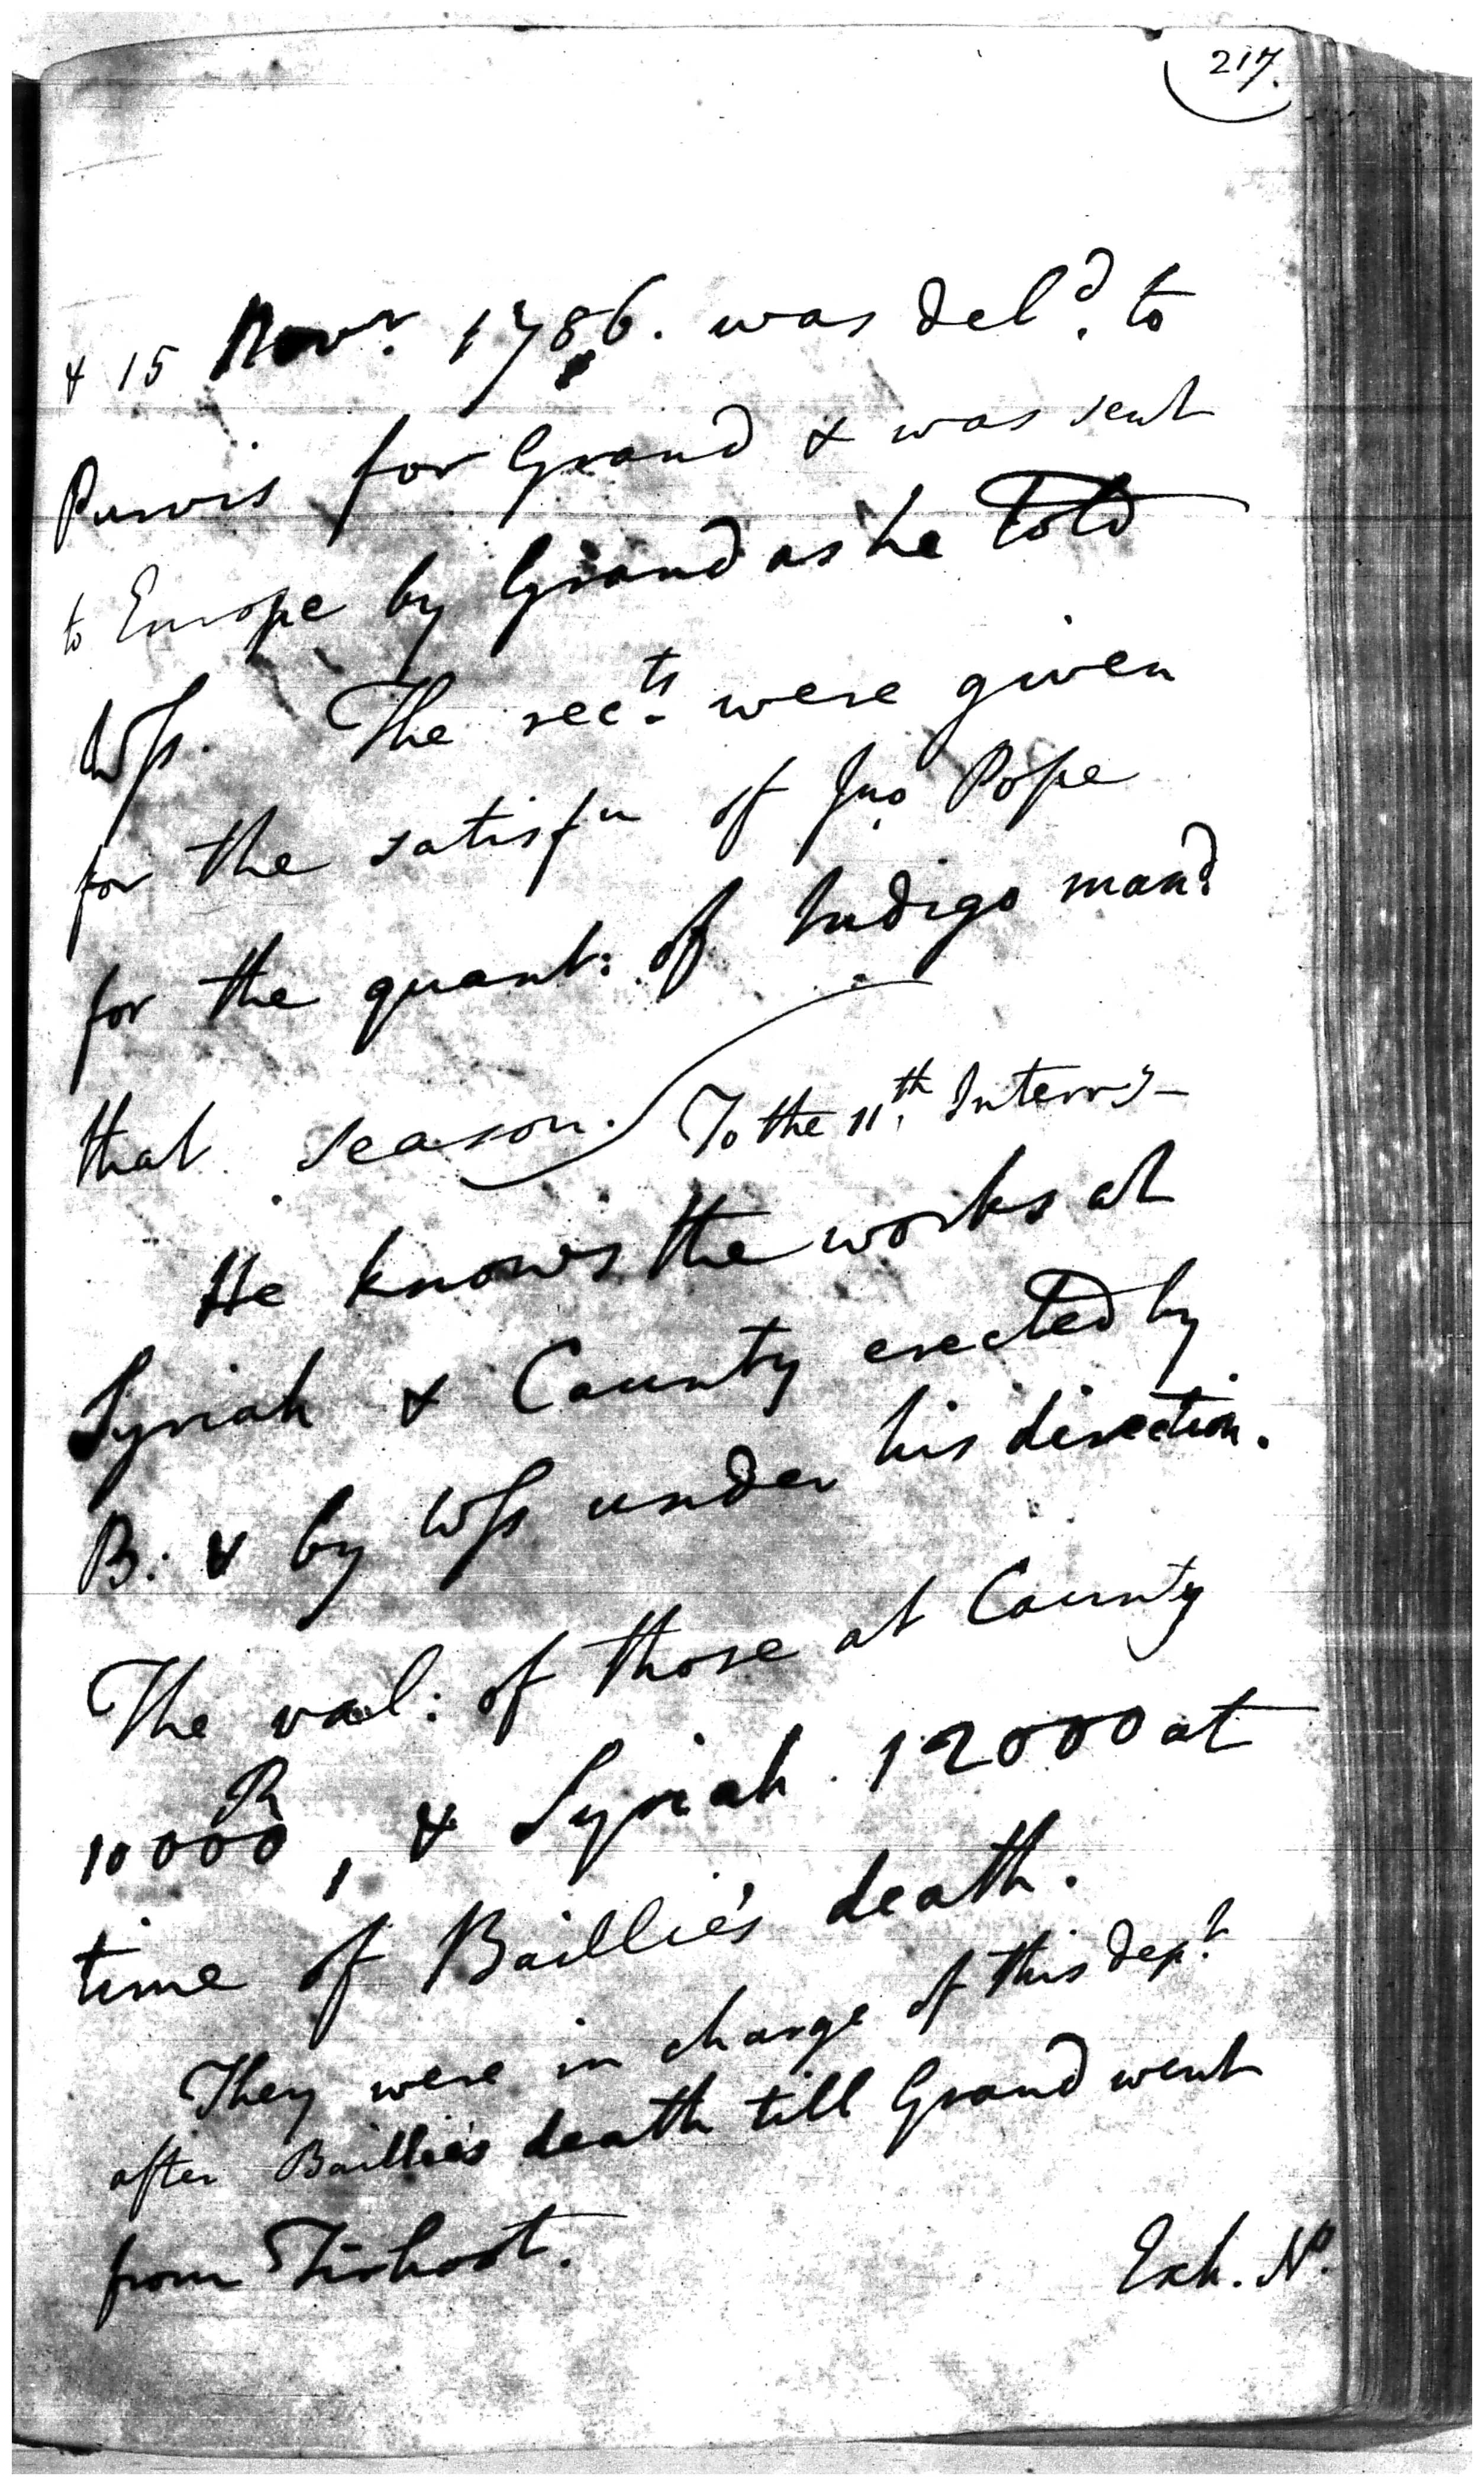 217.
& 15 Novr. 1786. was deld. to
Purvis for Grand & was sent
to Europe by Grand as he told
Wss. The rects. were given
for the satisfn of Jno Pope
for the quant: of Indigo mand.
that season. To the 11th. Interry
He knows the works at
Syriah & County erected by
B: & by Wss under his direction.
The val: of those at County
10000 R, & Syriah 12000 at
time of Baillie's death.
They were in charge of this dept.
after Baillie's death till Grand went
from Tirhoot.
Exh. No.